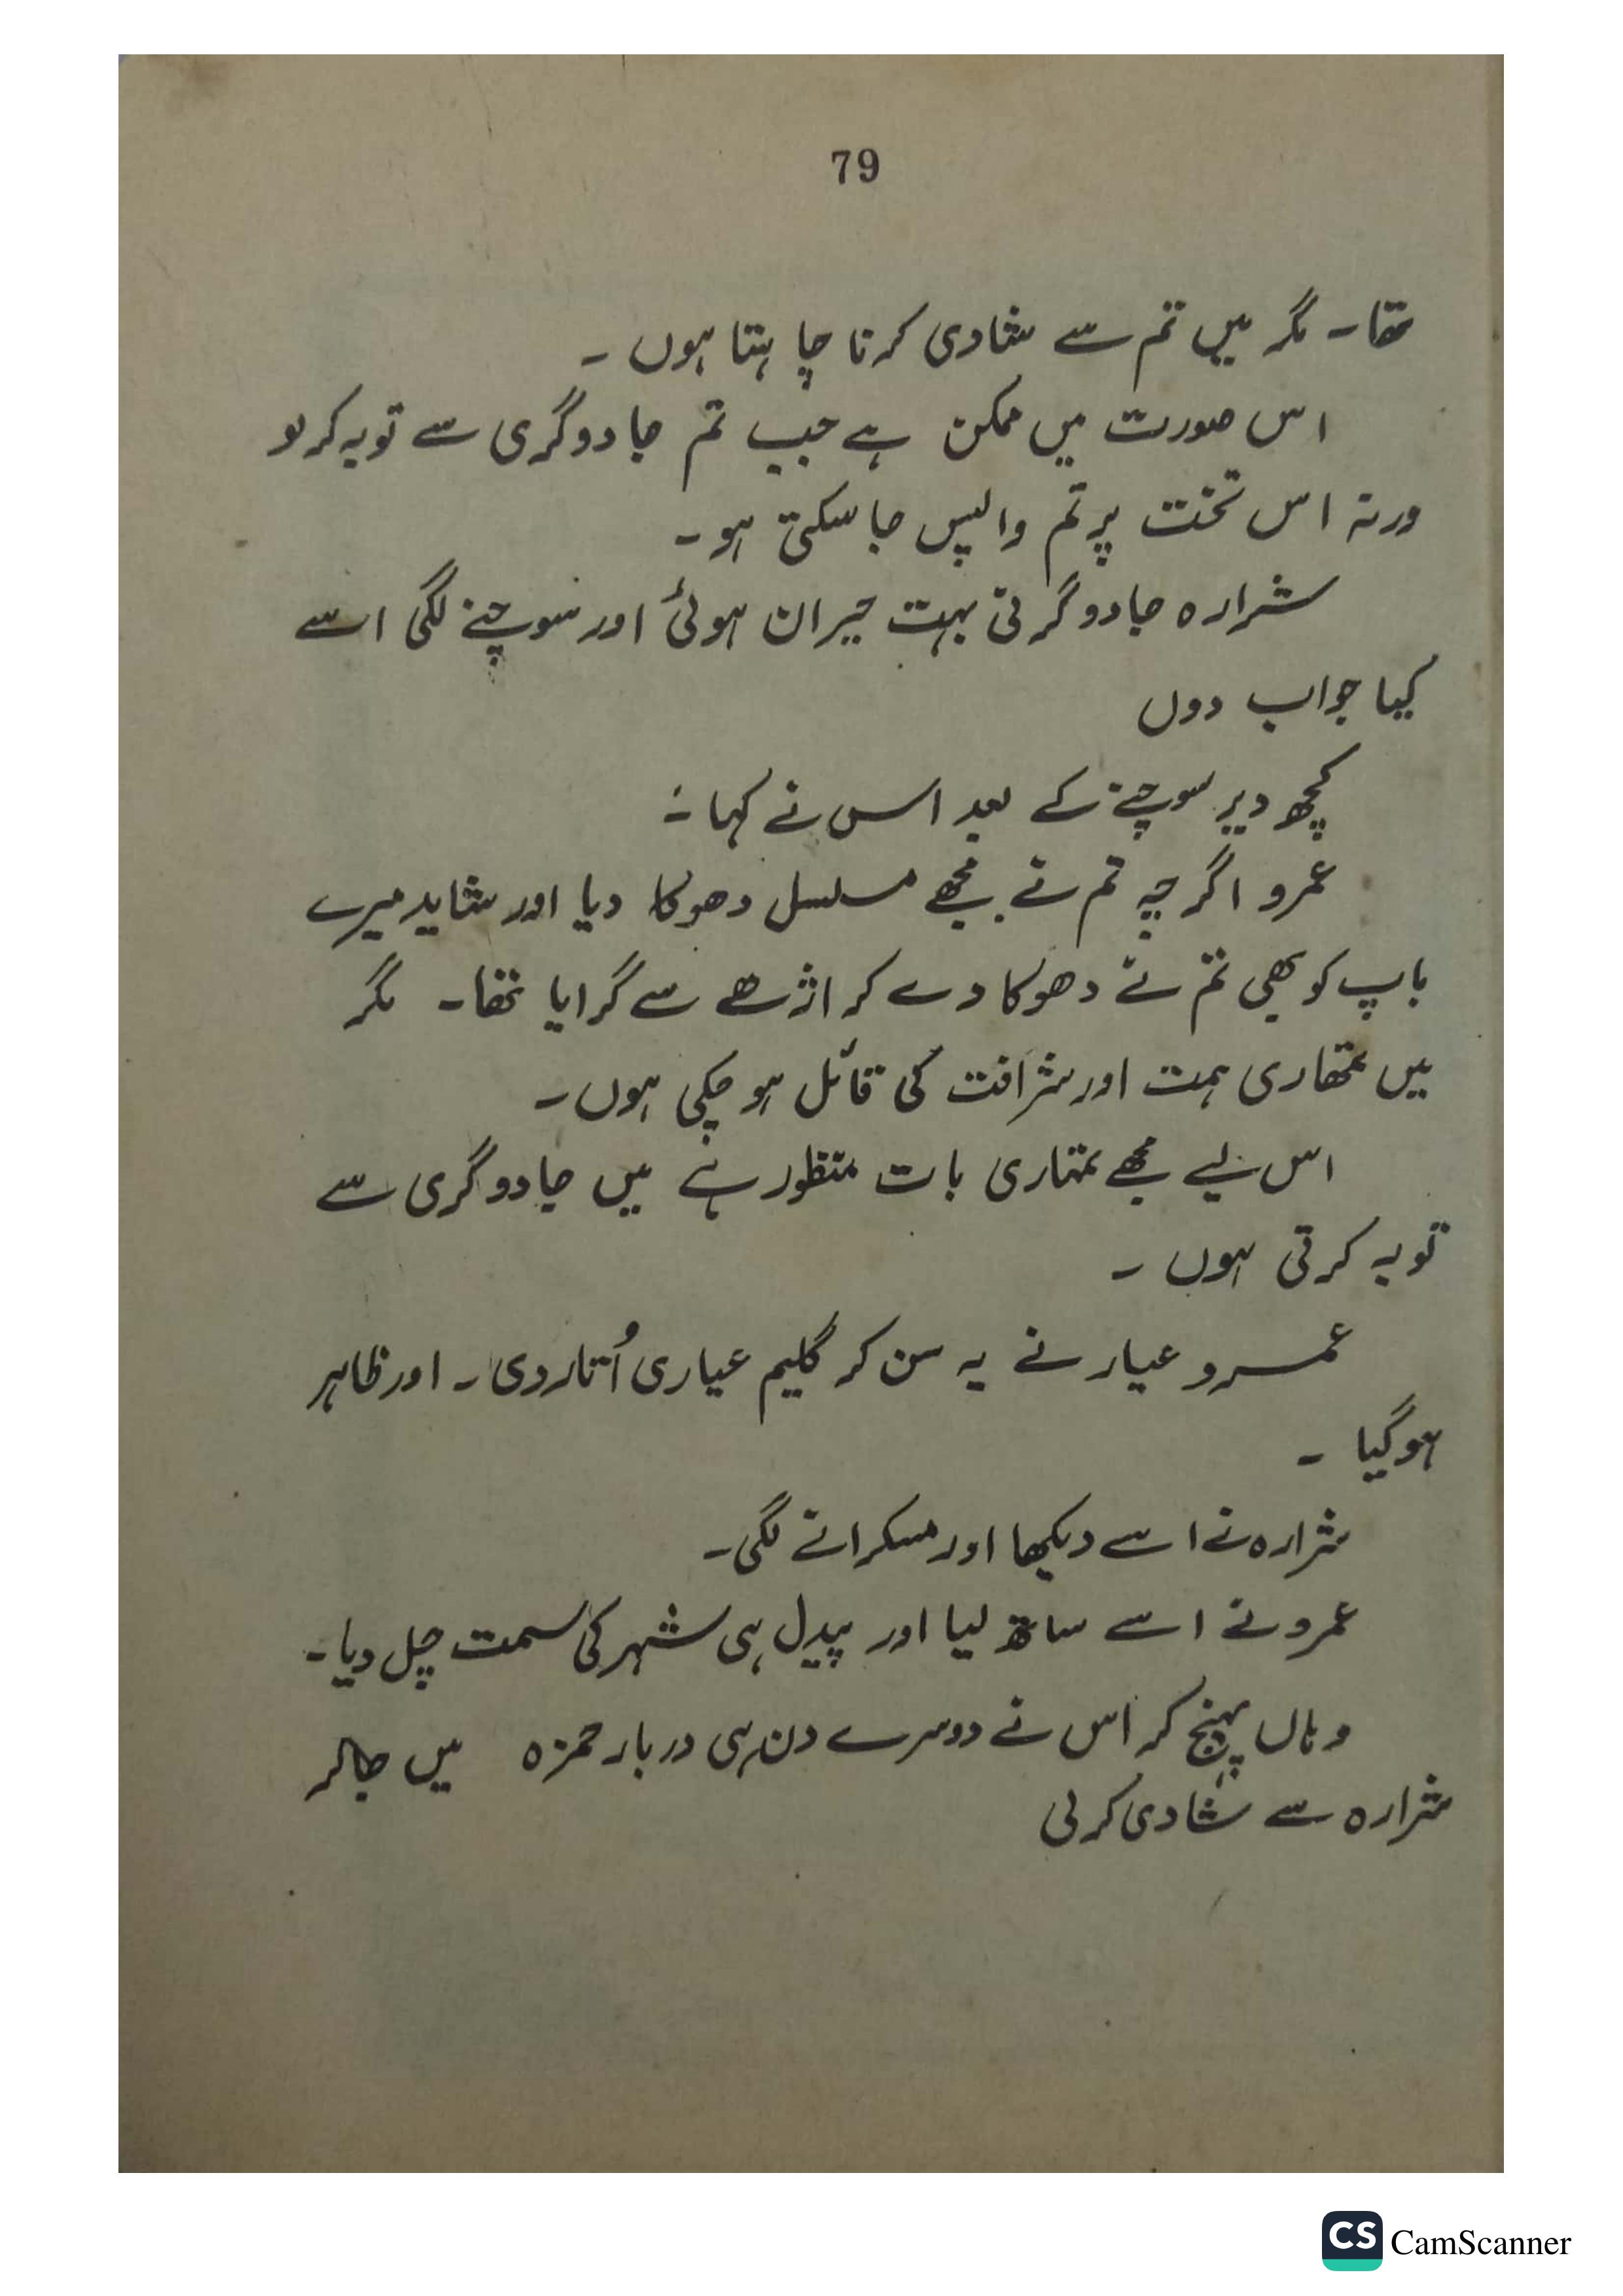 79
تھا۔ مگر میں تم سے شادی کرنا چاہتا ہوں۔
اس صورت میں ممکن ہے جب تم جادوگری سے توبہ کر لو
ورنہ اس تخت پر تم واپس جا سکتی ہو۔
شرارہ جادوگرنی بہت حیران ہوئی اور سوچنے لگی اسے
کیا جواب دوں
کچھ دیر سوچنے کے بعد اس نے کہا :۔
عمرو اگرچہ تم نے مجھے مسلسل دھوکا دیا اور شاید میرے
باپ کو بھی تم نے دھوکا دے کر اژدھے سے گرایا تھا۔ مگر
میں تمھاری ہمت اور شرافت کی قائل ہو چکی ہوں۔
اس لیے مجھے تمہاری بات منظور ہے میں جادوگری سے
توبہ کرتی ہوں ۔
عمرو عیار نے یہ سن کر گلیم عیاری اُتار دی ۔ اور ظاہر
ہو گیا ۔
شرارہ نے اسے دیکھا اور مسکرانے لگی۔
عمرو نے اسے ساتھ لیا اور پیدل ہی شہر کی سمت چل دیا۔
وہاں پہنچ کر اس نے دوسرے دن ہی دربار حمزہ میں جا کر
شرارہ سے شادی کر لی
CS CamScanner